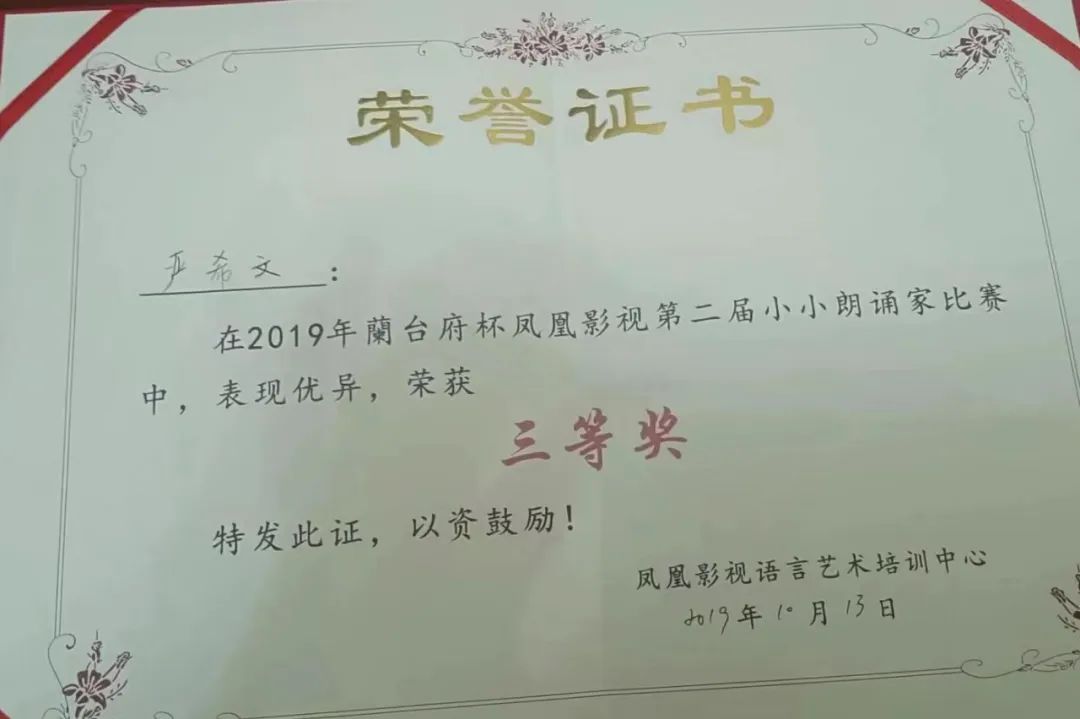 荣誉证书
严希文：
在2019年蘭台府杯凤凰影视第二届小小朗诵家比赛
中，表现优异，荣获
三等奖
特发此证，以资鼓励！
凤凰影视语言艺术培训中心
2019年10月13日